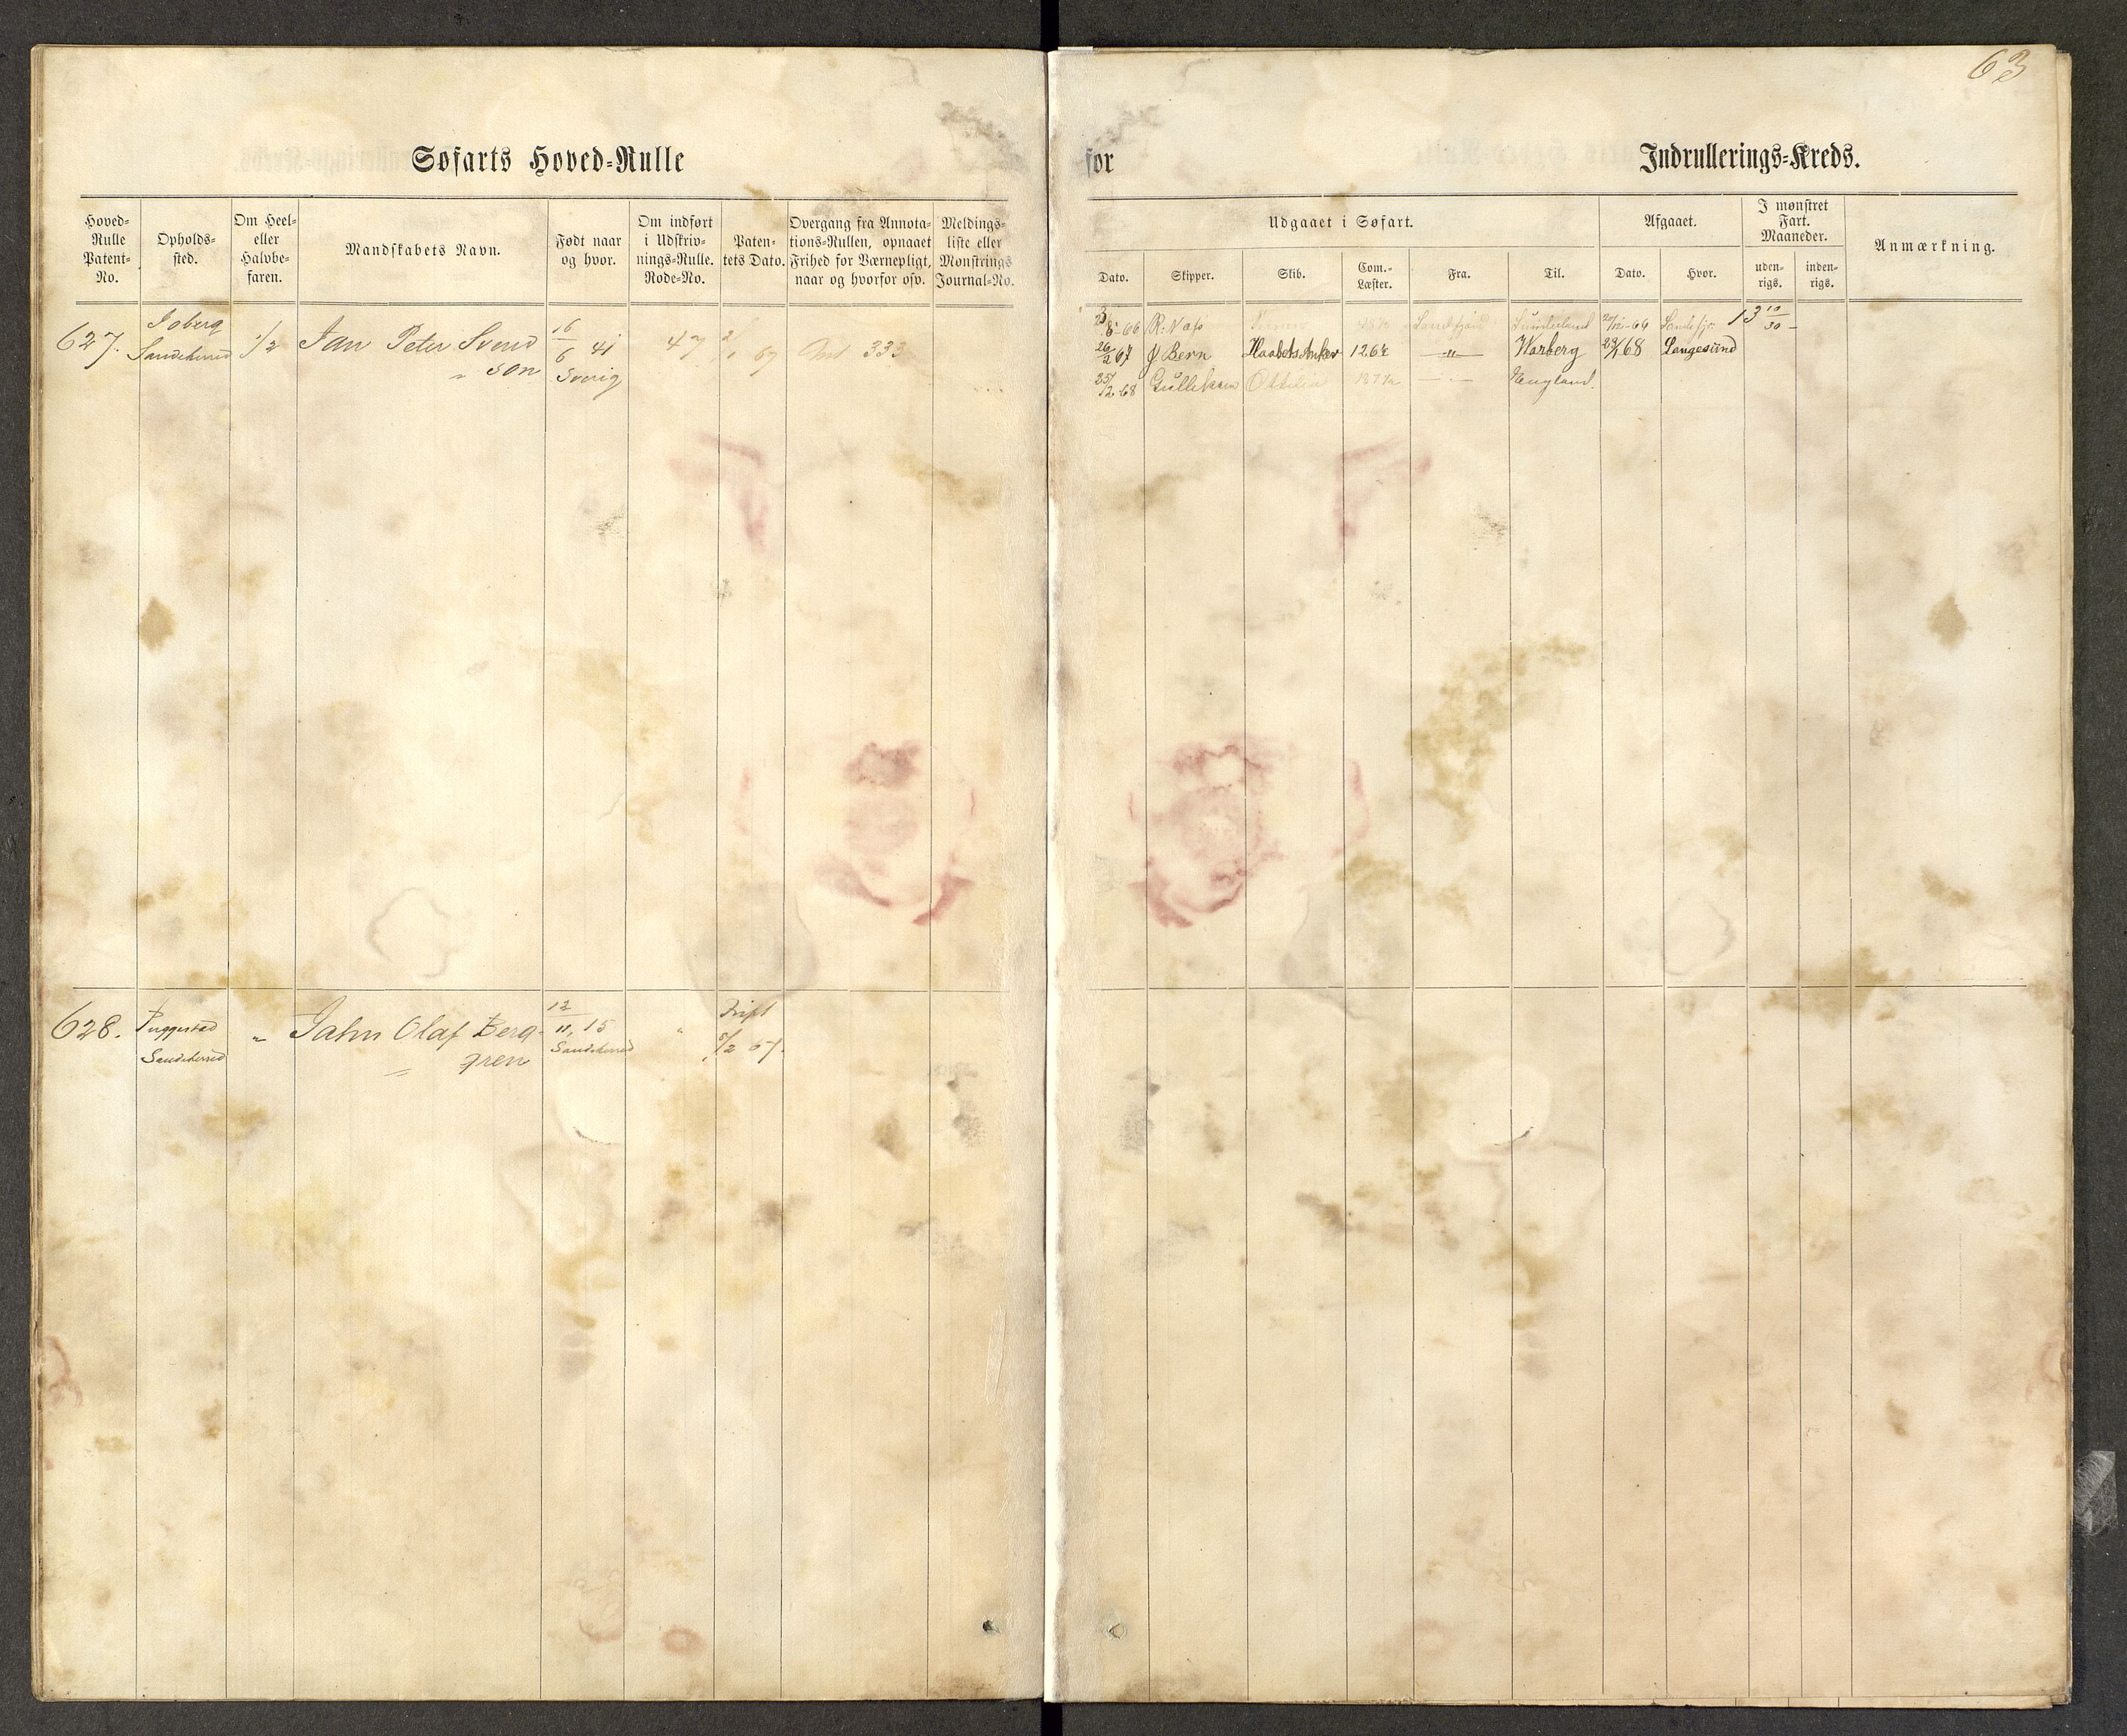 63
Søfarts Hoved-Rulle
for
Indrullerings-Kreds.
Hoved-
Rulle
Patent-
No.
Opholds-
sted.
Om Heel-
eller
Halvbe-
faren.
Mandskabets Navn.
Født naar
og hvor.
Om indført
i Udskriv-
nings-Rulle.
Rode-No.
Paten-
tets Dato.
Overgang fra Annota-
tions-Rullen, opnaaet
Frihed for Værnepligt,
naar og hvorfor osv.
Meldings-
liste eller
Mønstrings
Journal-No.
Udgaaet i Søfart.
Dato.
Skipper.
Skib.
Com.-
Læster.
Fra.
Til.
Afgaaet.
Dato.
Hvor.
I mønstret
Fart.
Maaneder.
uden-
rigs.
inden-
rigs.
Anmærkning.
627.
Sandeherred
1/2
Jan Peter Svend
son
16
6 41
Sverig
47
2/1 67
333
8-66 R. Sandefjord Sunderland 20/12-66 Sandefj. 13 10/30
26/2 67 J Bern Haabets Anker 126 1/2 —"— Warberg 29/1 68 Langesund
25/2 68 Gulliksen Ottilia —"— England.
628.
Sandeherred
"
Jahn Olaf Berg-
gren
12
11, 15
Sandeherred
"
8/2 67.